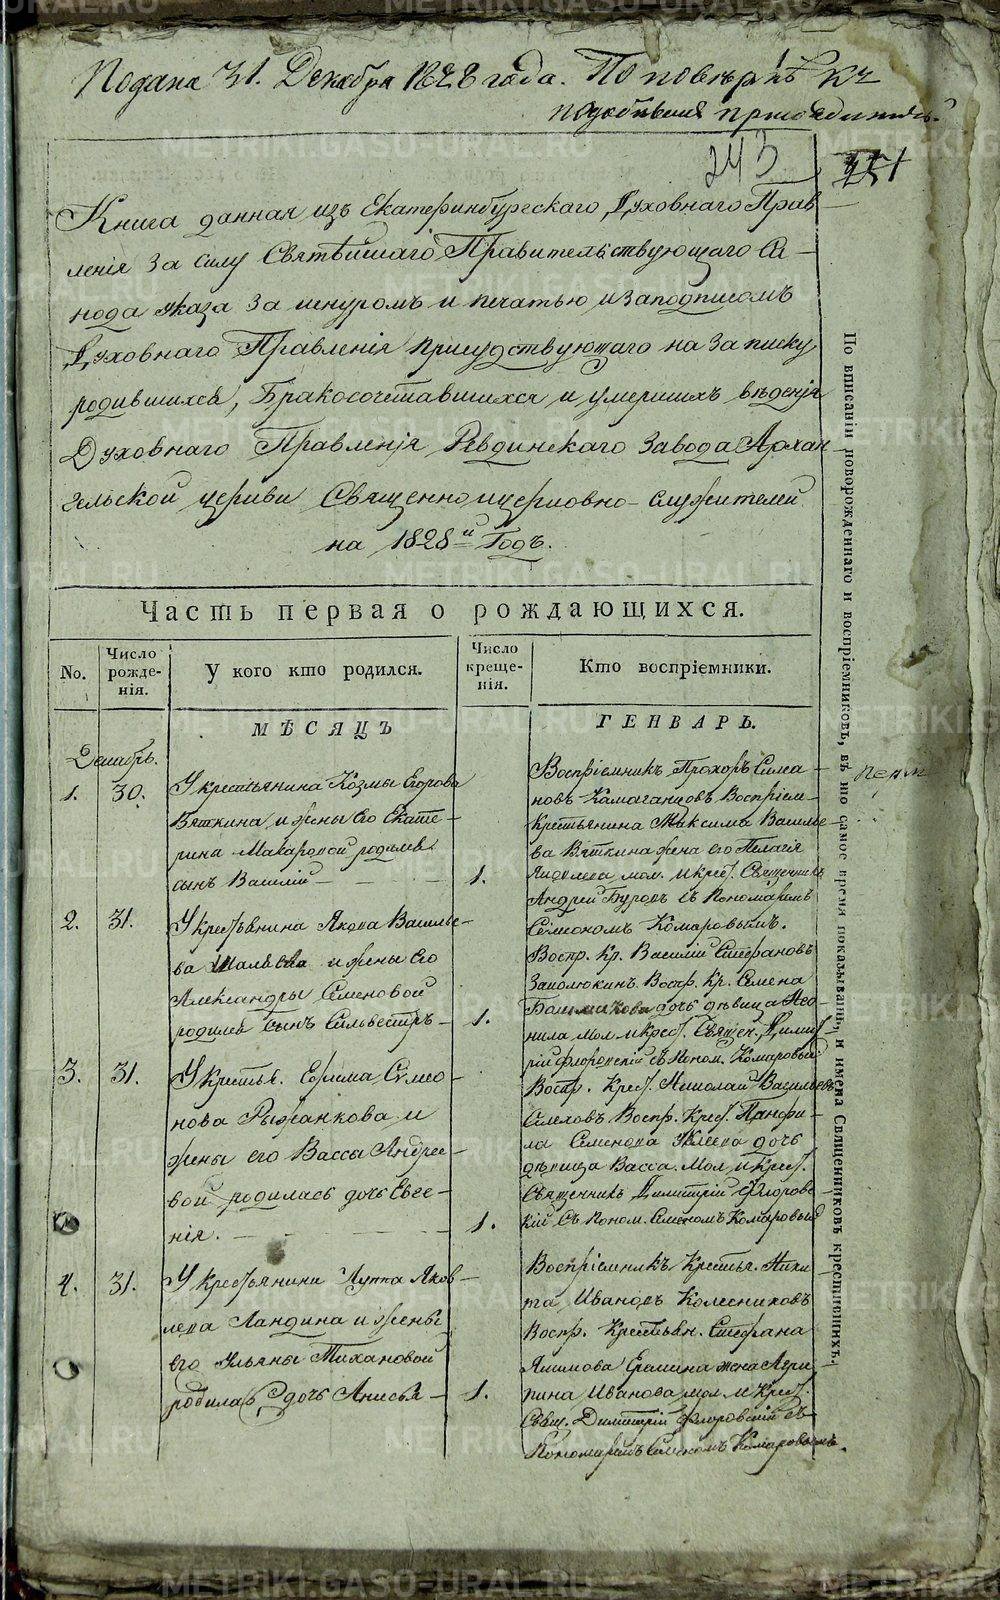 Подана 31. Декабря 1828 года. По повѣркѣ къ
подобнымъ пріобщить
243
Книга данная изъ Екатеринбургскаго Духовнаго Прав-
ленія За силу Святѣйшаго Правительствующаго Си-
нода указа За шнуромъ и печатью и заподписомъ
Духовнаго Правленія присудствующаго на Записку
родившихся, Бракосочетавшихся и умершихъ вѣденія
Духовнаго Правленія Ревдинскаго Завода Архан-
гельской церкви Священноицерковно-служителей
на 1828й Годъ.
Часть первая о рождающихся.
No.
Число рожде-нія.
У кого кто родился.
Число креще-нія.
Кто воспріемники.
МѢСЯЦЪ
ГЕНВАРЬ.
Декабрь.
1. 30.
У крестьянина Козмы Егорова
Вяткина и жены Его Екате-
рины Макаровой родился
сынъ Василій
1.
Воспріемникъ Прохоръ Симо-
новъ Камаганцовъ Воспріем-
Крестьянина Максима Василье-
ва Вяткина жена его Пелагія
мол. и Крест. Священникъ
Андрей Буровъ съ Пономаремъ
Семеномъ Комаровымъ.
2. 31.
У крестьянина Якова Василье-
ва и жены Его
Александры Семеновой
родился сынъ Сильвестръ
1.
Воспр. Кр. Василій Стефановъ
Заколюкинъ Воспр. Кр. Семена
дочь дѣвица Нео-
нила мол. и Крест. Священ. Димит-
рій Флоровскій съ Поном. Комаровымъ
3. 31.
У Крестья. Ефима Симео-
нова Рыжанкова и
жены его Вассы Андрее-
вой родилась дочь Евге-
нія.
1.
Воспр. Крест. Николай Васильевъ
Воспр. Крест. Панфи-
ла Семенова дочь
дѣвица Васса. Мол. и Крест.
Священникъ Димитрій Флоровс-
кій Съ Поном. Семеномъ Комаровымъ
4. 31.
У Крестьянина Луппа Яков-
лева Ландина и жены
его Ульяны Тихановой
родилась дочь Анисья
1.
Воспріемникъ Крестья. Ники-
та Ивановъ Колесниковъ
Воспр. Крестьян. Стефана
Якимова Еремина жена Агри-
пина Иванова мол. и Крест.
Свящ. Димитрій Флоровскій съ
Пономаремъ Семеномъ Комаровымъ.
По вписаніи новорожденнаго и воспріемниковъ, въ то самое время показывать, и имена Священниковъ крестившихъ.
METRIKI.GASO-URAL.RU